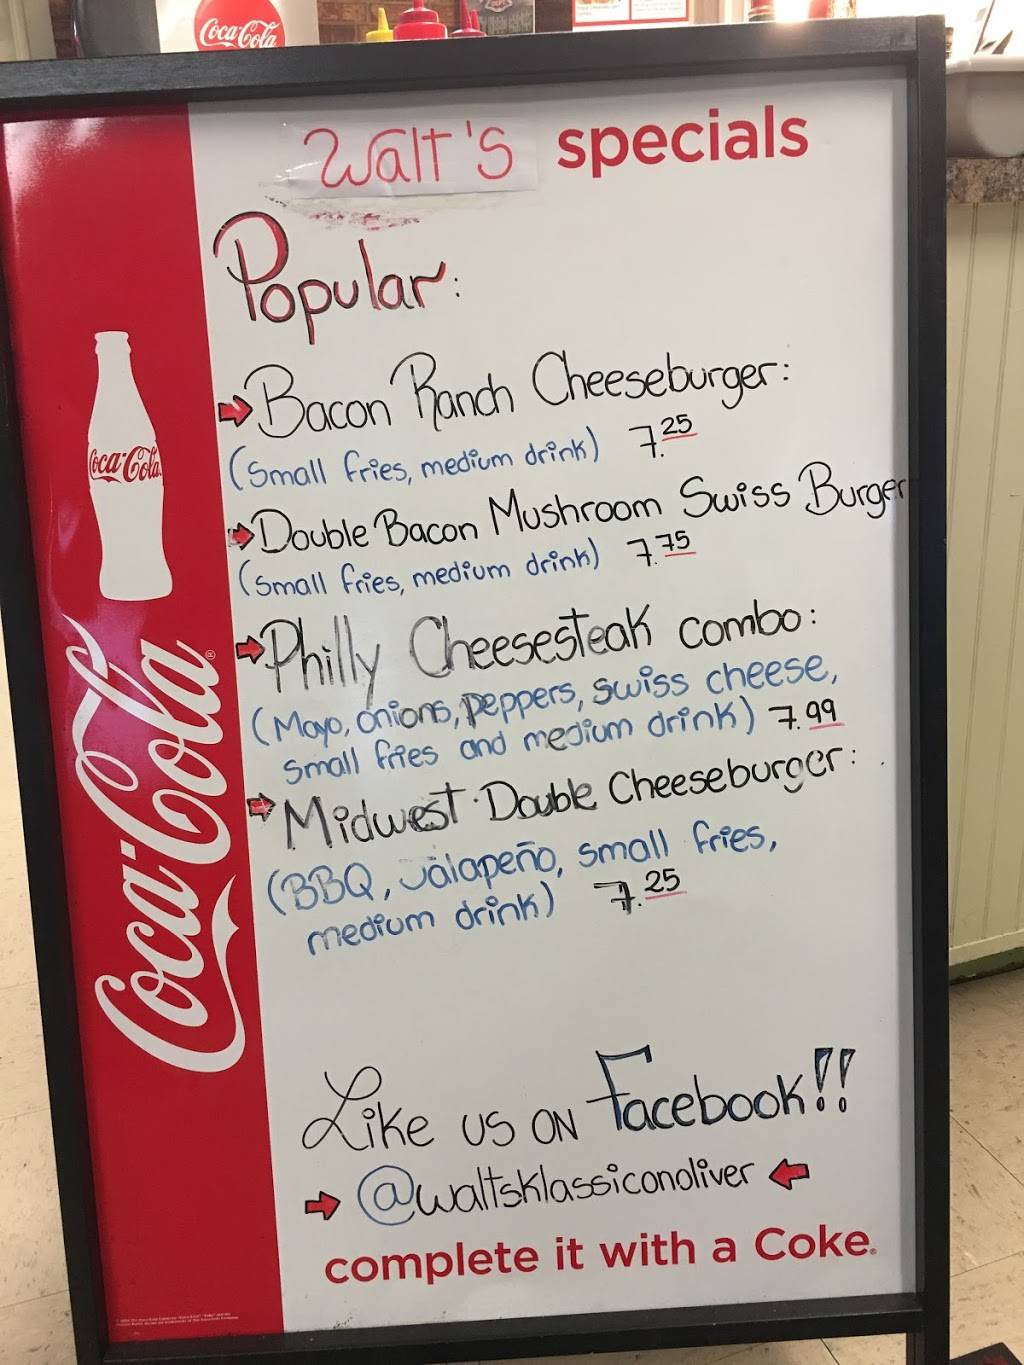 Coca-Cola
Walt's specials
Popular:
Bacon Ranch Cheeseburger:
(small fries, medium drink) 7.25
Double Bacon Mushroom Swiss Burger
(small fries, medium drink) 7.75
Philly Cheesesteak combo:
(Mayo, onions, peppers, swiss cheese,
small fries and medium drink) 7.99
Midwest Double Cheeseburger:
(BBQ, jalapeño, small fries,
medium drink) 7.25
Like us on Facebook!!
@waltsklassiconoliver
complete it with a Coke®
Coca-Cola
Coca-Cola®